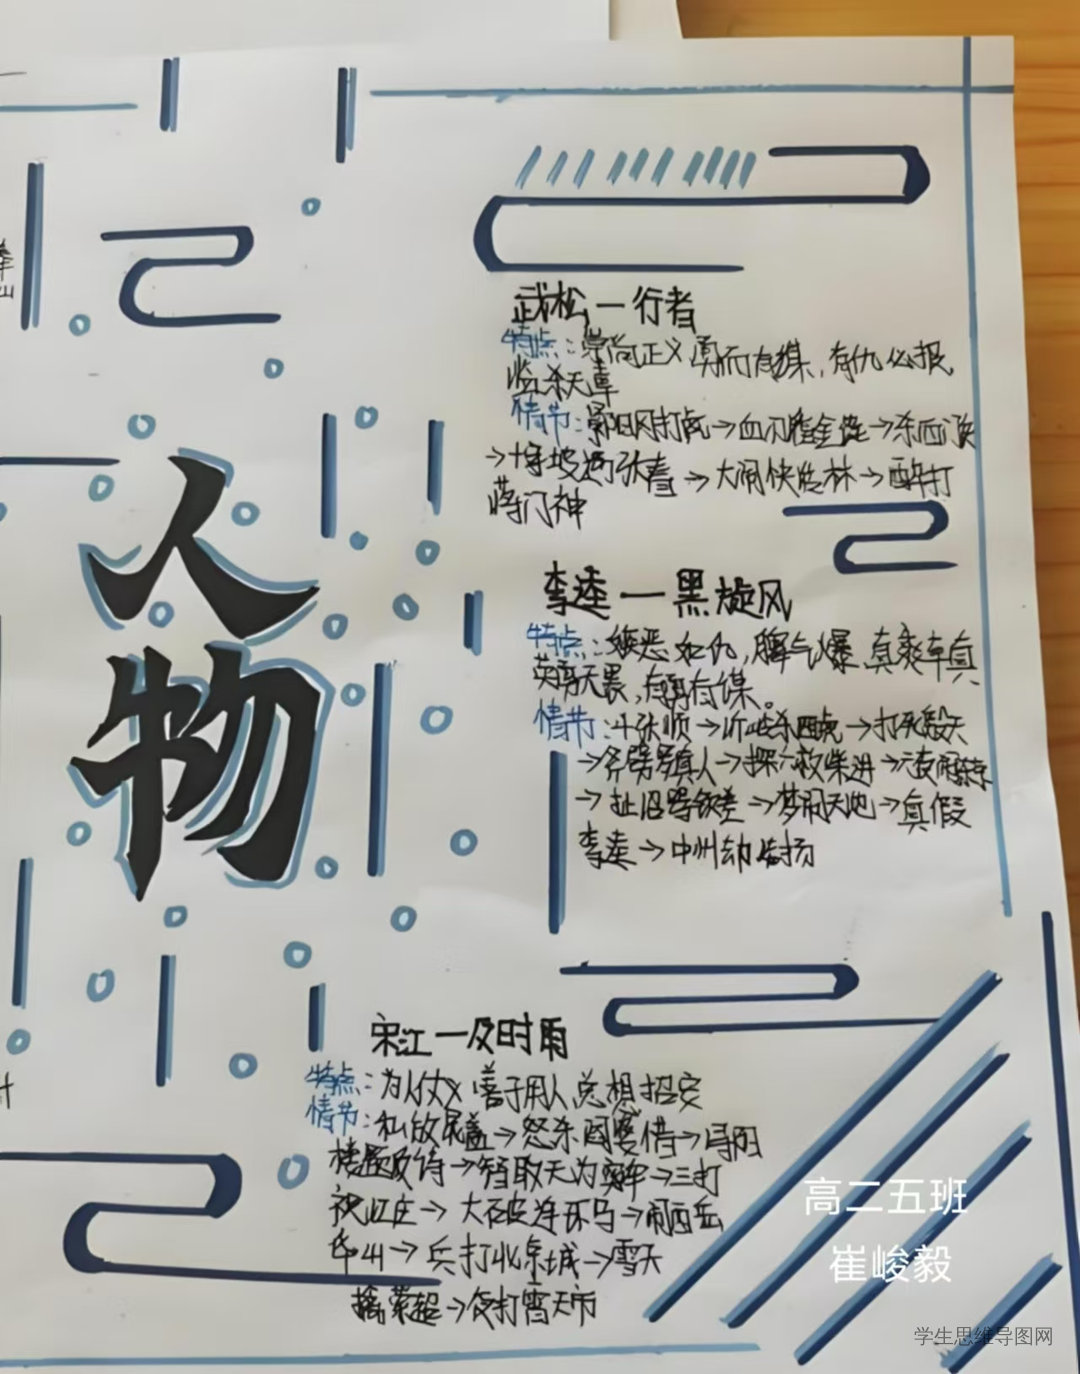 人
物
武松一行者
特点:崇尚正义 勇而有谋,有仇必报
滥杀无辜
情节:景阳冈打虎→血刃潘金莲→东西
→十字坡遇张青→大闹快活林→醉打
蒋门神
李逵一黑旋风
特点:嫉恶如仇,脾气火爆,真率真
英勇无畏,有勇有谋。
情节:斗张顺→沂岭杀四虎→打死殷天
→斧劈罗真人→探穴救柴进→
→扯诏谤钦差→梦闹天池→真假
李逵→中州劫法场
宋江一及时雨
特点:为人仗义 善于用人 总想招安
情节:私放晁盖→怒杀阎婆惜→浔阳
楼题反诗→智取无为军→三打
祝家庄→大破连环马→闹西岳
华山→兵打北京城→雪天
擒索超→夜打曾头市
高二五班
崔峻毅
学生思维导图网